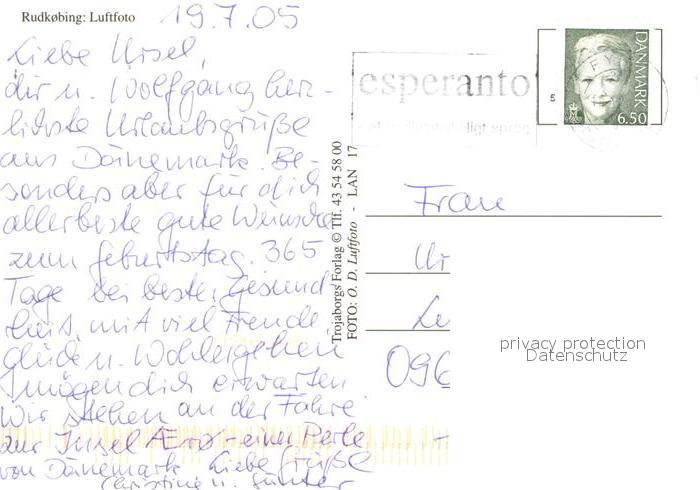 Rudkøbing: Luftfoto
19.7.05
Liebe Ursel,
dir u. Wolfgang herz-
lichste Urlaubsgrüße
aus Dänemark. Be-
sonders aber für dich
allerbeste gute Wünsche
zum Geburtstag. 365
Tage bei bester Gesund
heit, mit viel Freude,
Glück u. Wohlergehen
mögen dich erwarten.
Wir stehen an der Fähre
zur Insel Ærø - einer Perle
von Dänemark. Liebe Grüße
Christine u. Günter
Trojaborgs Forlag © Tlf. 43 54 58 00
FOTO: O. D. Luftfoto - LAN 17
esperanto
DANMARK
6.50
Frau
Ur
096
privacy protection
Datenschutz